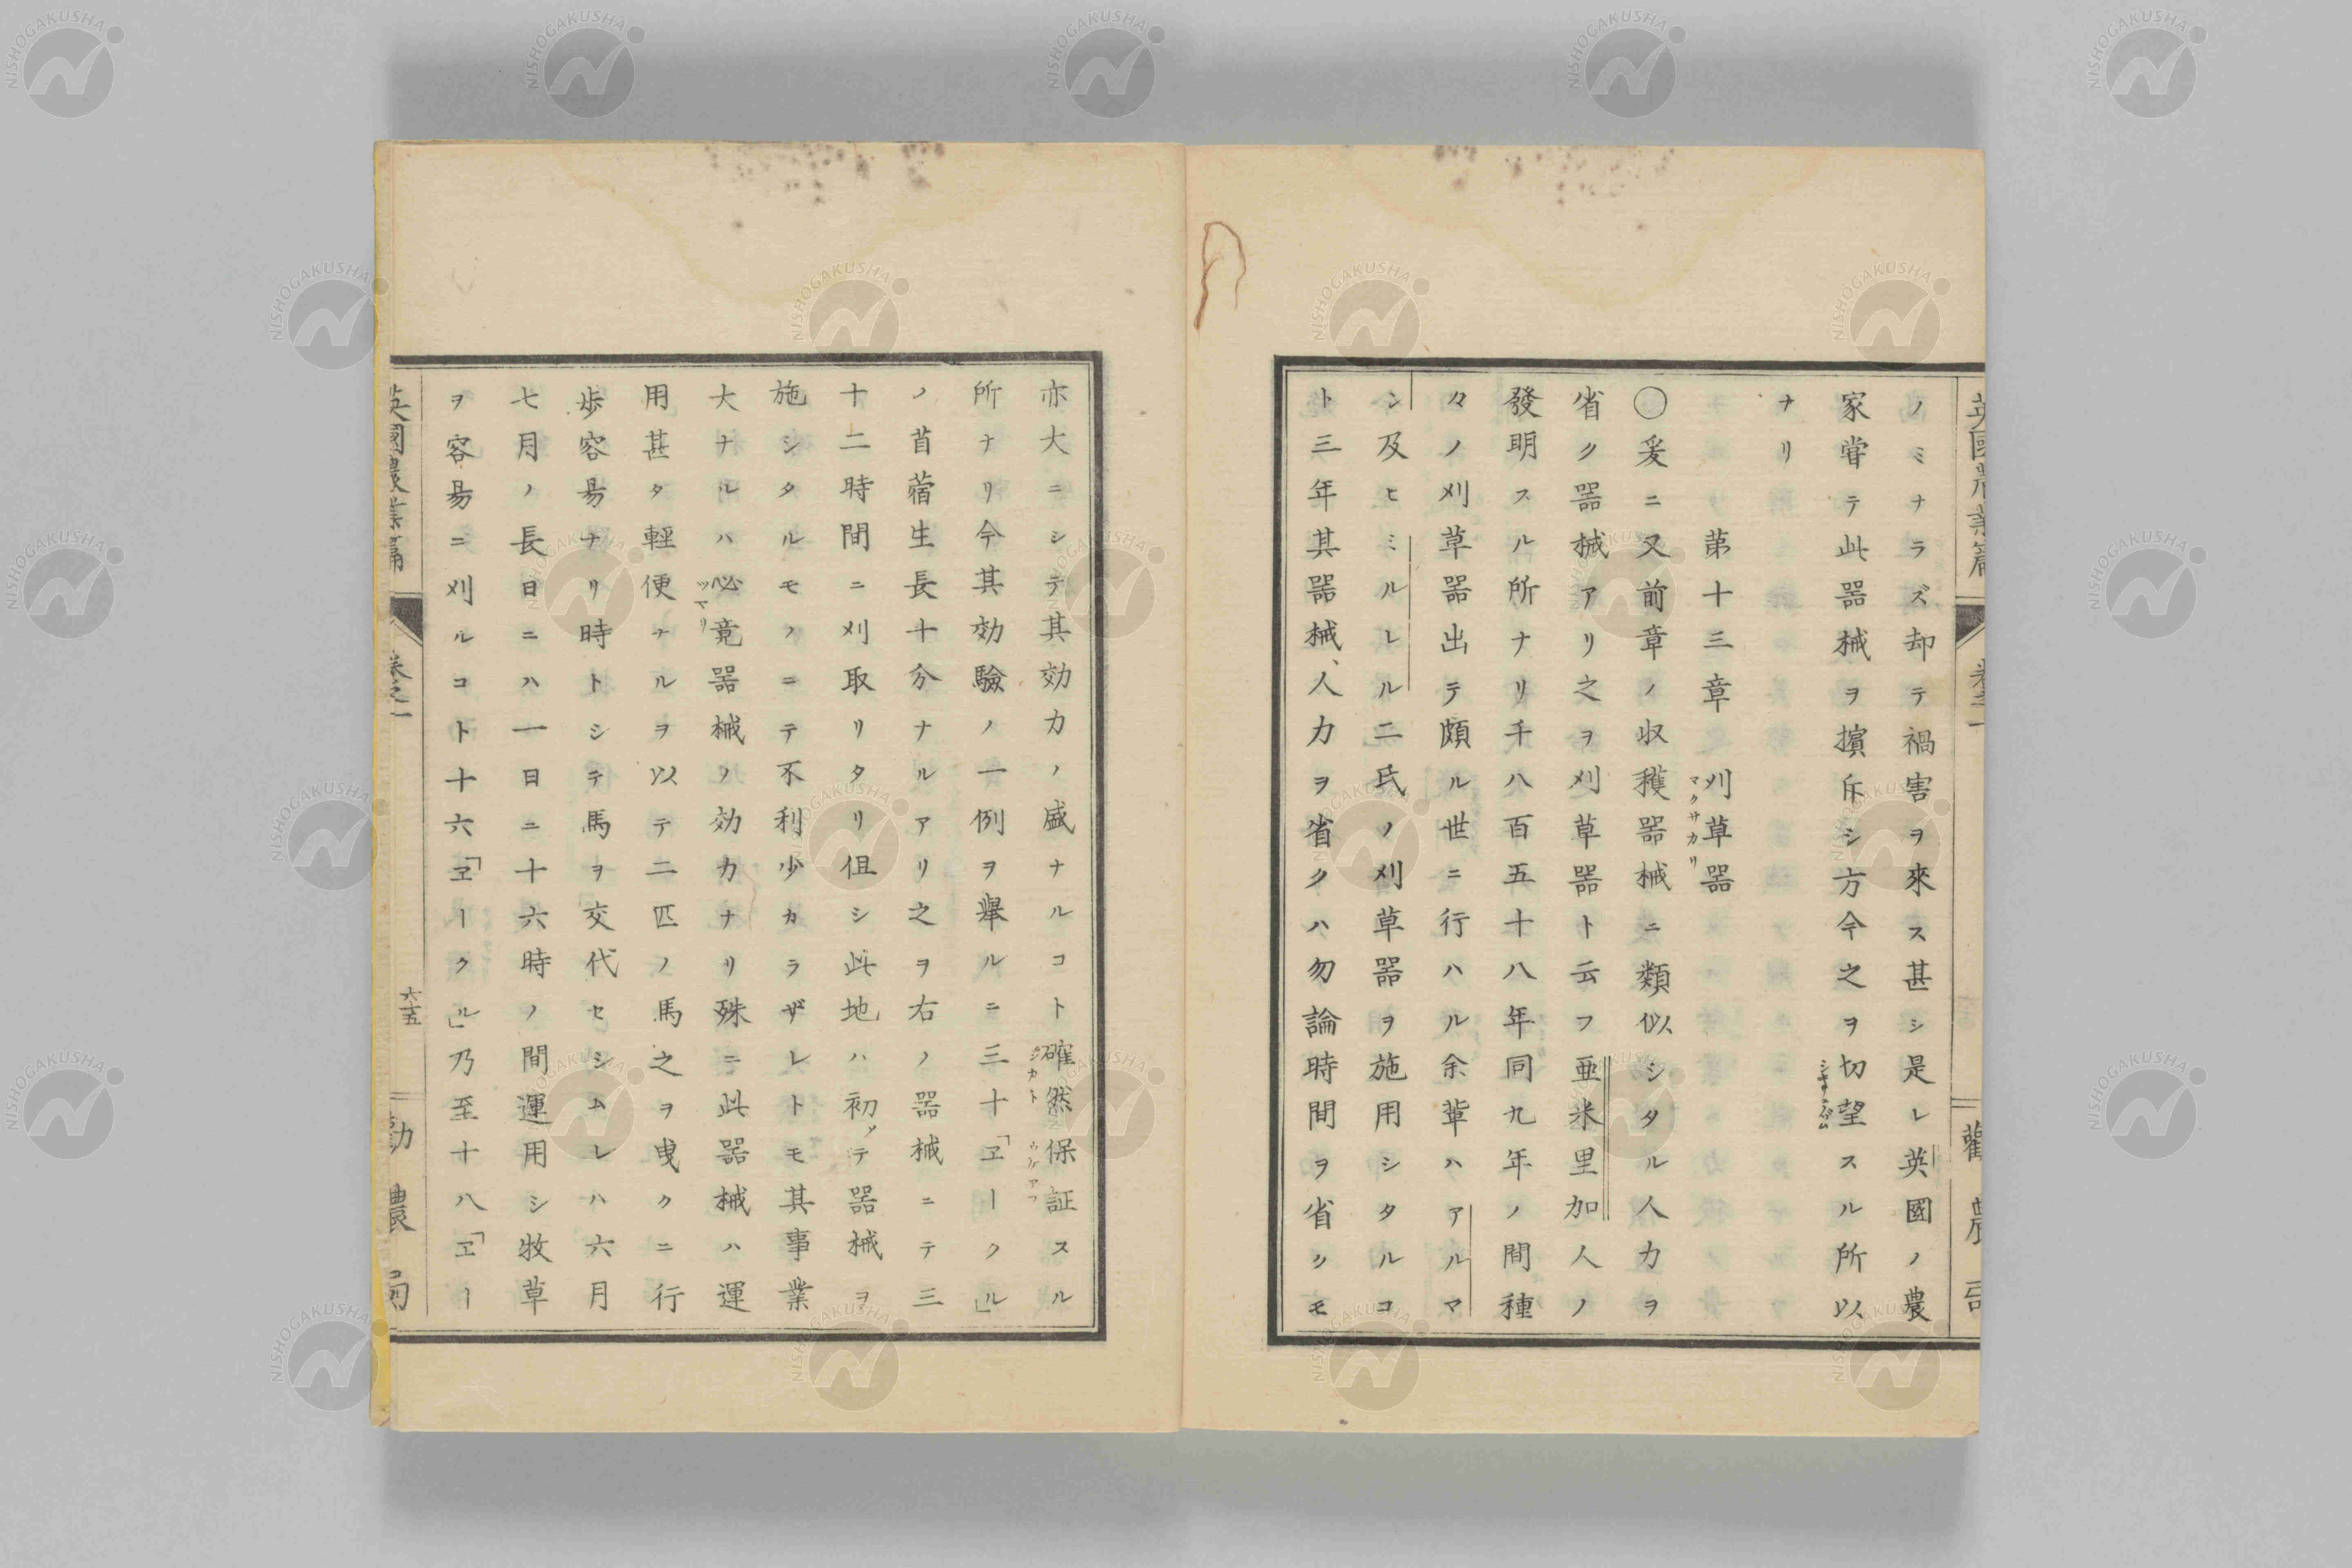 ノミナラズ却テ禍害ヲ來ス甚シ是レ英國ノ農
家甞テ此器械ヲ擯斥シ方今之ヲ切望スル所以
ナリ
第十三章 刈草器
マクサカリ
〇爰ニ又前章ノ收穫器械ニ類似シタル人力ヲ
省ク器械アリ之ヲ刈草器ト云フ亜米里加人ノ
發明スル所ナリ千八百五十八年同九年ノ間種
々ノ刈草器出テ頗ル世ニ行ハル余輩ハアルマ
ン及ヒミルレル二氏ノ刈草器ヲ施用シタルコ
ト三年其器械、人力ヲ省クハ勿論時間ヲ省クモ
亦大ニシテ其効力ノ盛ナルコト確然保証スル
所ナリ今其効驗ノ一例ヲ舉ルニ三十「ヱークル」
ノ苜蓿生長十分ナルアリ之ヲ右ノ器械ニテ三
十二時間ニ刈取リタリ伹シ此地ハ初テ器械ヲ
施シタルモノニテ不利少カラザレトモ其事業
大ナルハ必竟器械ノ効力ナリ殊ニ此器械ハ運
ツマリ
用甚タ輕便ナルヲ以テ二匹ノ馬之ヲ曳クニ行
歩容易ナリ時トシテ馬ヲ交代セシムレハ六月
七月ノ長日ニハ一日ニ十六時ノ間運用シ牧草
ヲ容易ニ刈ルコト十六「ヱークル」乃至十八「ヱー
英國農業篇
卷之一
六十五
勸農局
NISHOGAKUSHA